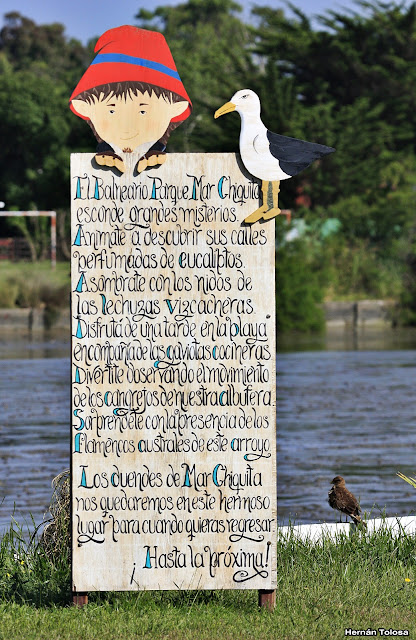 El Balneario Parque Mar Chiquita
esconde grandes misterios.
Animate a descubrir sus calles
perfumadas de eucaliptos.
Asómbrate con los nidos de
las lechuzas vizcacheras.
Disfruta de una tarde en la playa
en compañía de las gaviotas cocineras.
Divertite observando el movimiento
de los cangrejos de nuestra albufera.
Sorprendete con la presencia de los
Flamencos australes de este arroyo.
Los duendes de Mar Chiquita
nos quedaremos en este hermoso
lugar para cuando quieras regresar.
¡Hasta la próxima!
Hernán Tolosa